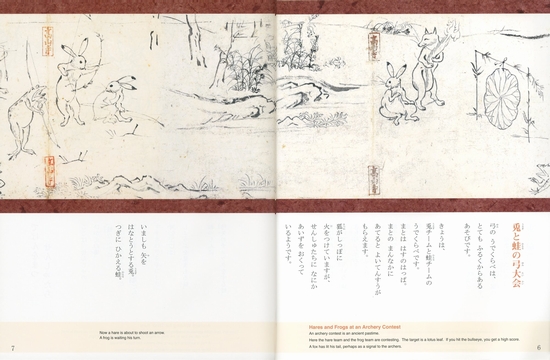 兎と蛙の弓大会
弓の うでくらべは、
とても ふるくからある
あそびです。
きょうは、
兎チームと蛙チームの
うでくらべです。
まとは はすのはっぱ。
まとの まんなかに
あてると よいてんすうが
もらえます。
狐がしっぽに
火をつけていますが、
せんしゅたちに なにか
あいずを おくって
いるようです。
Hares and Frogs at an Archery Contest
An archery contest is an ancient pastime.
Here the hare team and the frog team are contesting. The target is a lotus leaf. If you hit the bullseye, you get a high score.
A fox has lit his tail, perhaps as a signal to the archers.
6
いましも 矢を
はなとうとする兎。
つぎに ひかえる蛙。
Now a hare is about to shoot an arrow.
A frog is waiting his turn.
7